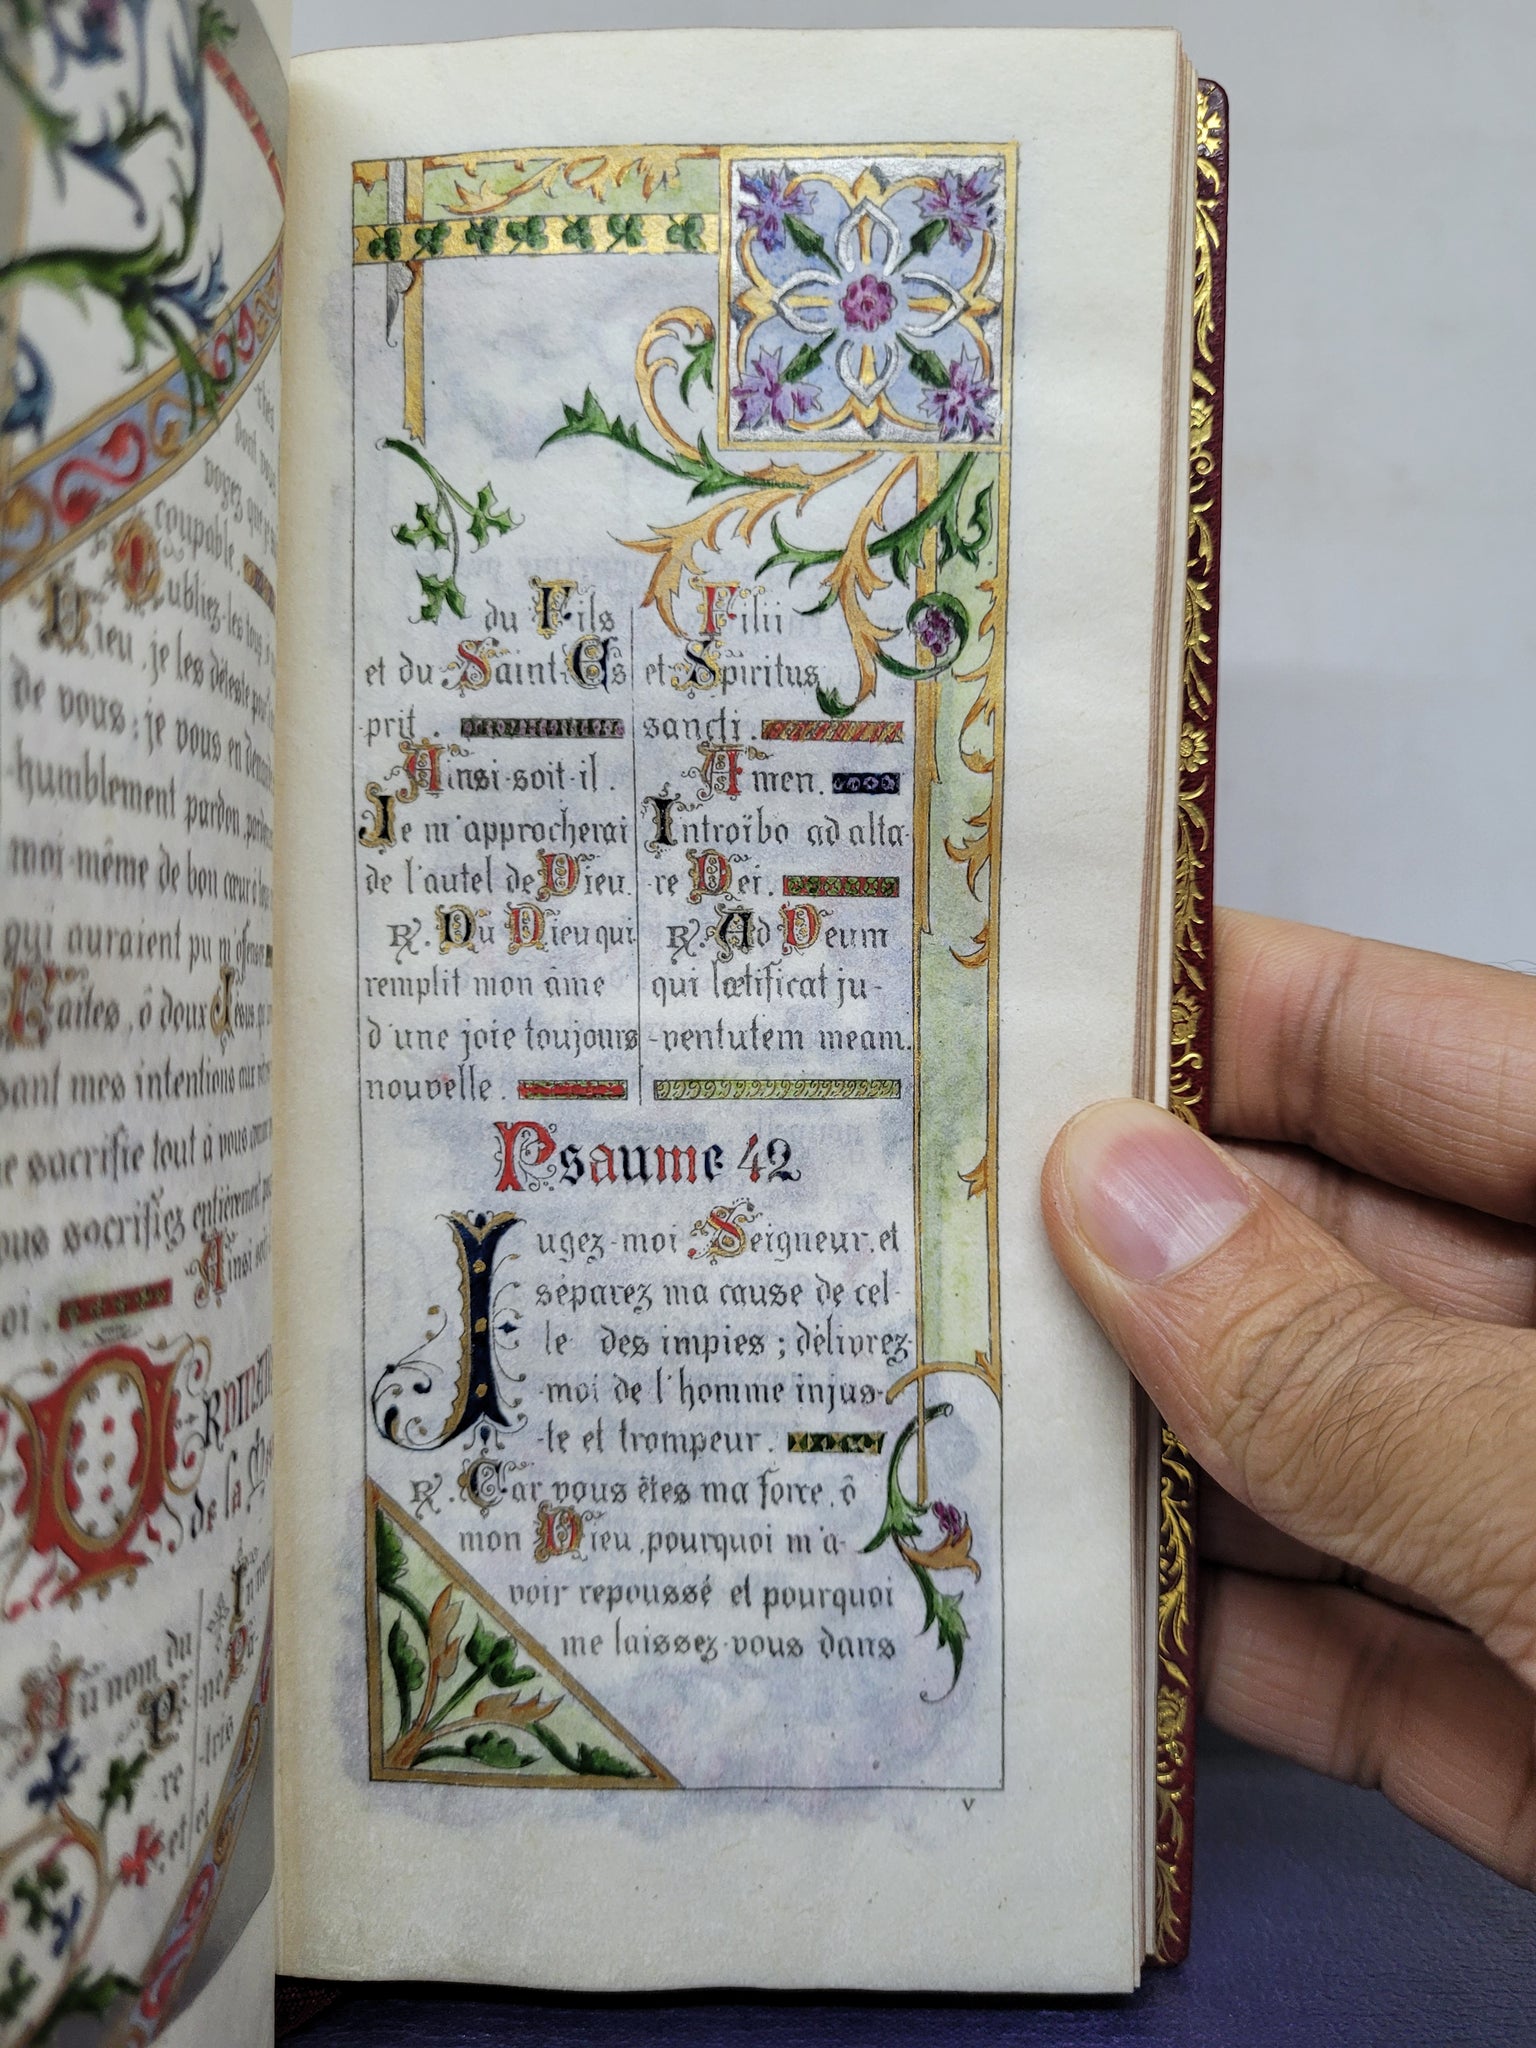 coupable.
oubliez-les tous, ô
Dieu, je les déteste pour
de vous; je vous en
humblement pardon,
moi-même de bon cœur à
qui auraient pu m'offenser
Faites, ô doux Jésus,
sant mes intentions aux
sacrifie tout à vous comme
vous sacrifiez entièrement
Ainsi
oi.
de la
Au nom du
et
du Fils
et du Saint-Es
prit.
Ainsi-soit-il.
Je m'approcherai
de l'autel de Dieu.
℟. Du Dieu qui
remplit mon âme
d'une joie toujours
nouvelle.
Filii
et Spiritus
sancti.
Amen.
Introïbo ad alta-
-re Dei.
℟. Ad Deum
qui lætificat ju-
-ventutem meam.
Psaume 42
Jugez-moi Seigneur, et
séparez ma cause de cel-
le des impies ; délivrez-
-moi de l'homme injus-
-te et trompeur.
℟. Car vous êtes ma force, ô
mon Dieu, pourquoi m'a-
voir repoussé et pourquoi
me laissez-vous dans
v